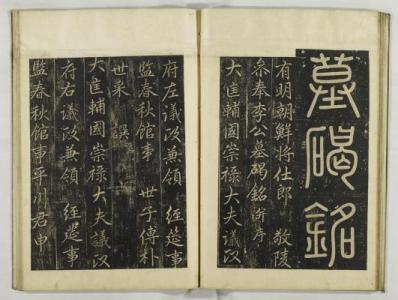 墓碣銘
有明朝鮮將仕郎 敬陵
叅奉李公墓碣銘幷序
大匡輔國崇祿大夫議政
府左議政兼領 經筵事
監春秋館事 世子傅朴
世采 撰
大匡輔國崇祿大夫議政
府右議政兼領 經筵事
監春秋館事平川君申